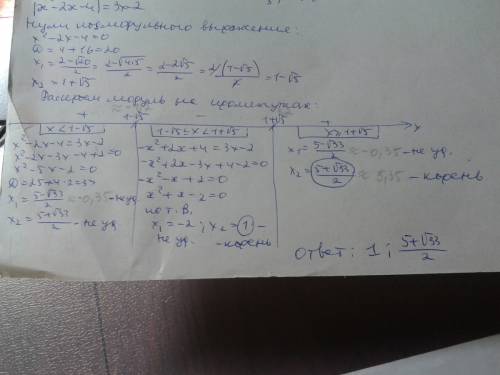 |x²-2x-4|=3x-2
Нули подмодульного выражения:
x²-2x-4=0
D=4+16=20
x₁=(2-√20)/2=(2-√4·5)/2=(2-2√5)/2=2(1-√5)/2=1-√5
x₂=1+√5
Раскроем модуль на промежутках:
+ 1-√5 - 1+√5 + x
x<1-√5
x²-2x-4=3x-2
x²-2x-3x-4+2=0
x²-5x-2=0
D=25+4·2=33
x₁=(5-√33)/2≈-0,35-не уд.
x₂=(5+√33)/2-не уд
1-√5≤x<1+√5
-x²+2x+4=3x-2
-x²+2x-3x+4+2=0
-x²-x+2=0
x²+x-2=0
по т. В.
x₁=-2; x₂=1-
не уд. -корень
x≥1+√5
x₁=(5-√33)/2≈-0,35-не уд.
x₂=(5+√33)/2≈5,35-корень
Ответ: 1; (5+√33)/2